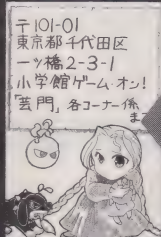 〒101-01
東京都千代田区
一ツ橋2-3-1
小学館ゲーム・オン!
「芸門」各コーナー係
ま